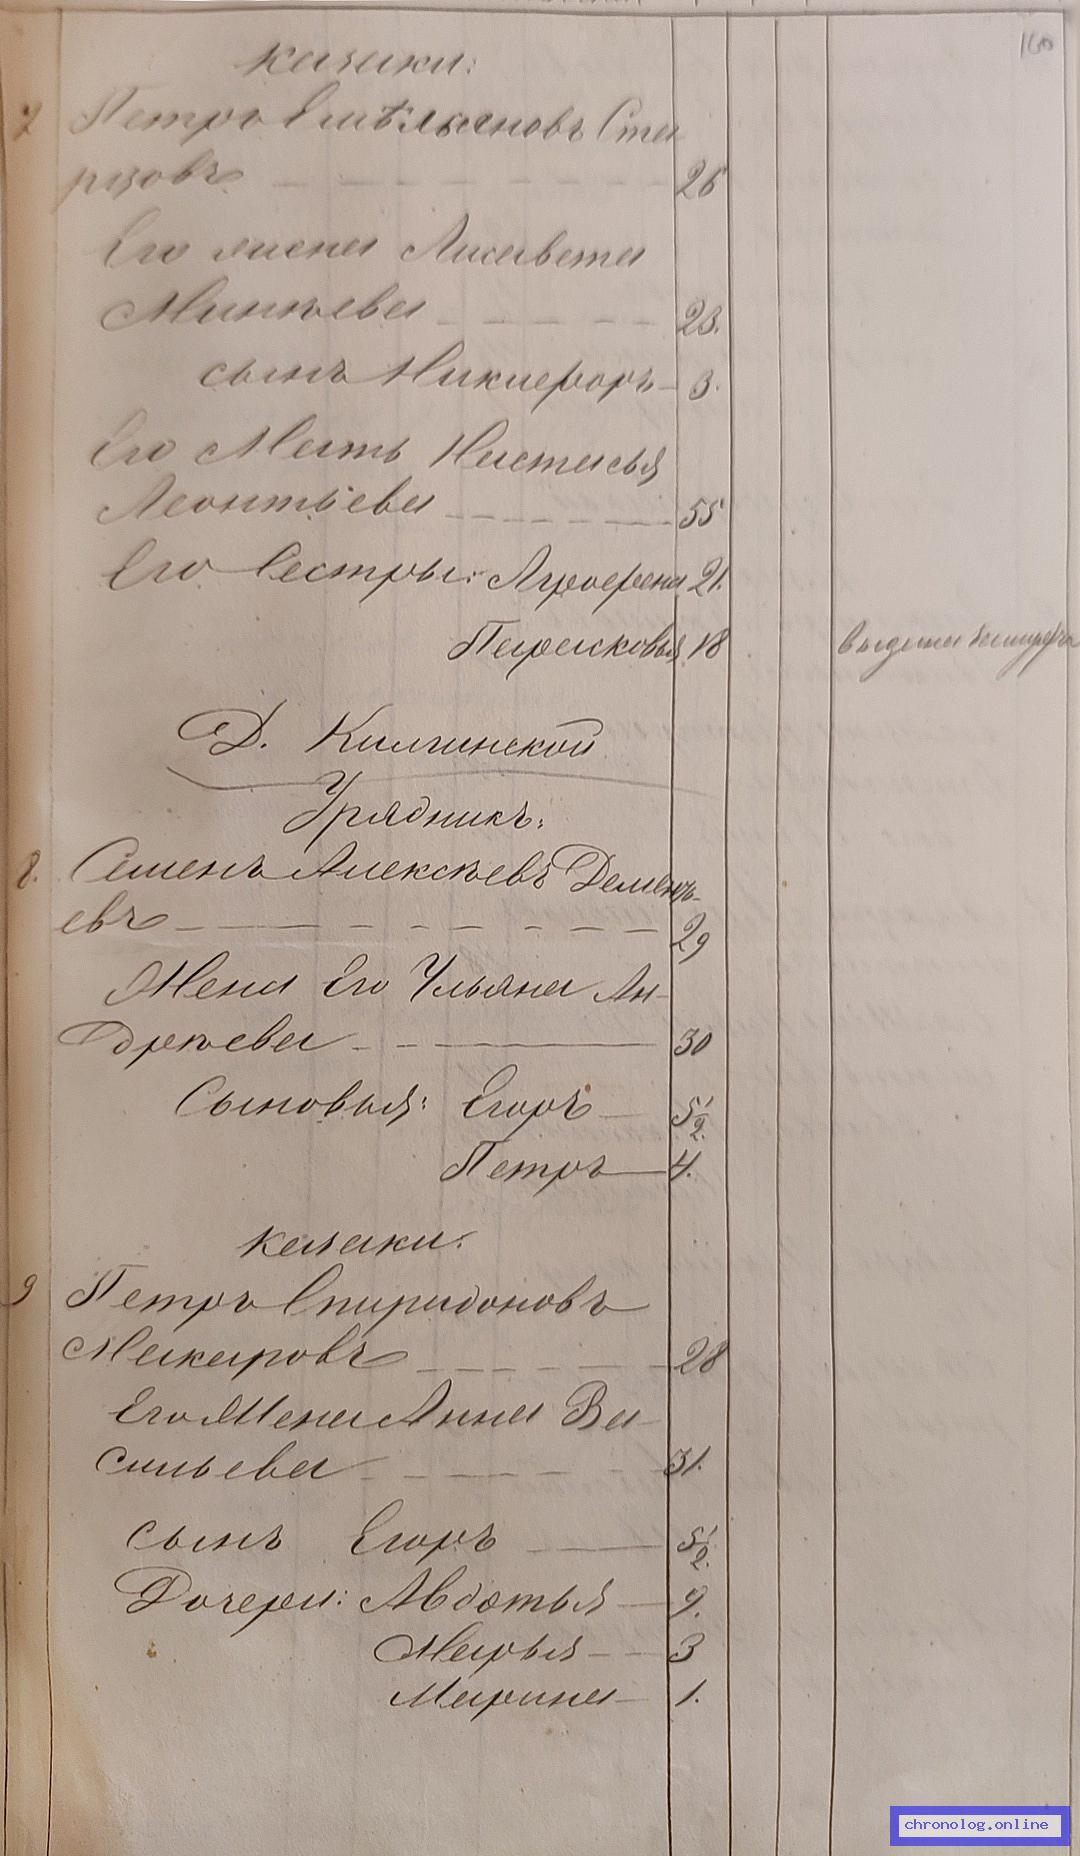 160
казаки:
7 Петръ Емѣльяновъ Ста
рковъ 26
Его жена Лисавета
Минѣева 23.
сынъ Никифоръ 3.
Его Мать Настасья
Леонтьева 55
Его Сестры: Аграфена 21.
Парасковья 18 выдана
Д. Килчинской
Урядникъ:
8. Семенъ Алексѣевъ Дементь-
евъ 29
Жена Его Ульяна Ан-
дрѣева 30
Сыновья: Егоръ 5 1/2.
Петръ 4.
казаки:
9 Петръ Спиридоновъ
Макаровъ 28
Его Жена Анна Ва-
сильева 31.
сынъ Егоръ 5 1/2.
Дочери: Авдотья 9.
Марья 3
Марина 1.
chronolog.online